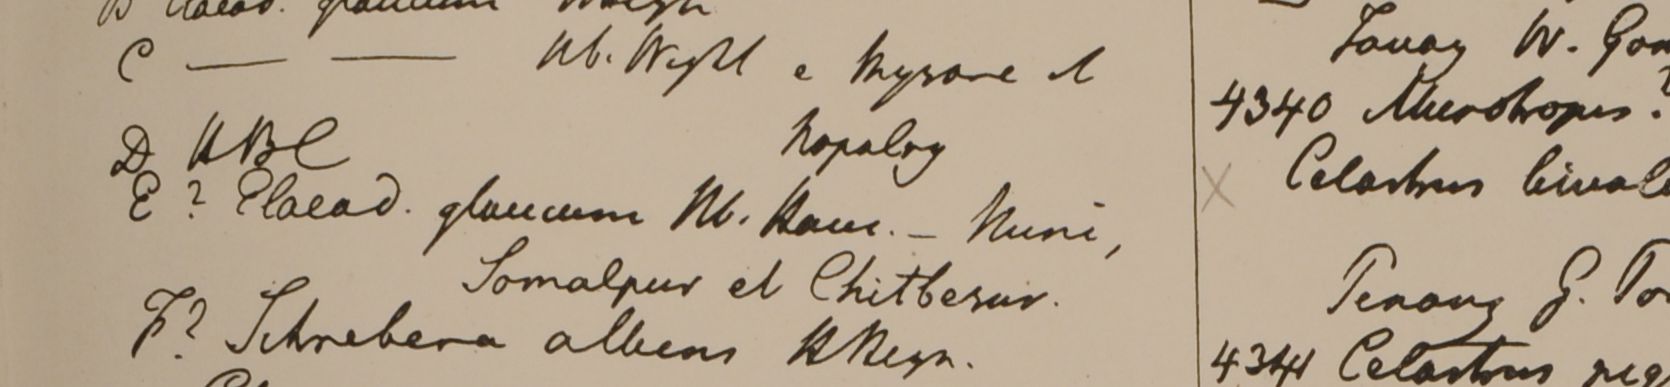 B Elaeod. glaucum HHeyn
C — — Hb. Wight e Mysore et
Nopalry
D HBC
E ? Elaeod. glaucum Hb. Ham. - Nuni,
Somalpur et Chitbesur.
F? Schrebera albens HHeyn.
Tavoy W. Gom
4340 Microtropis?
X Celastrus bivalv
Penang G. Po
4341 Celastrus